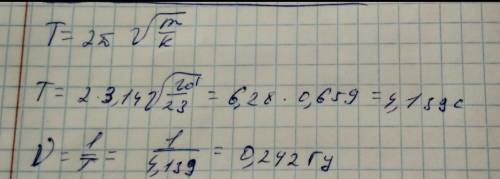 T = 2π √(m/k)
T = 2·3,14 √(10/23) = 6,28 · 0,659 = 4,139 с
ν = 1/T = 1/4,139 = 0,242 Гц